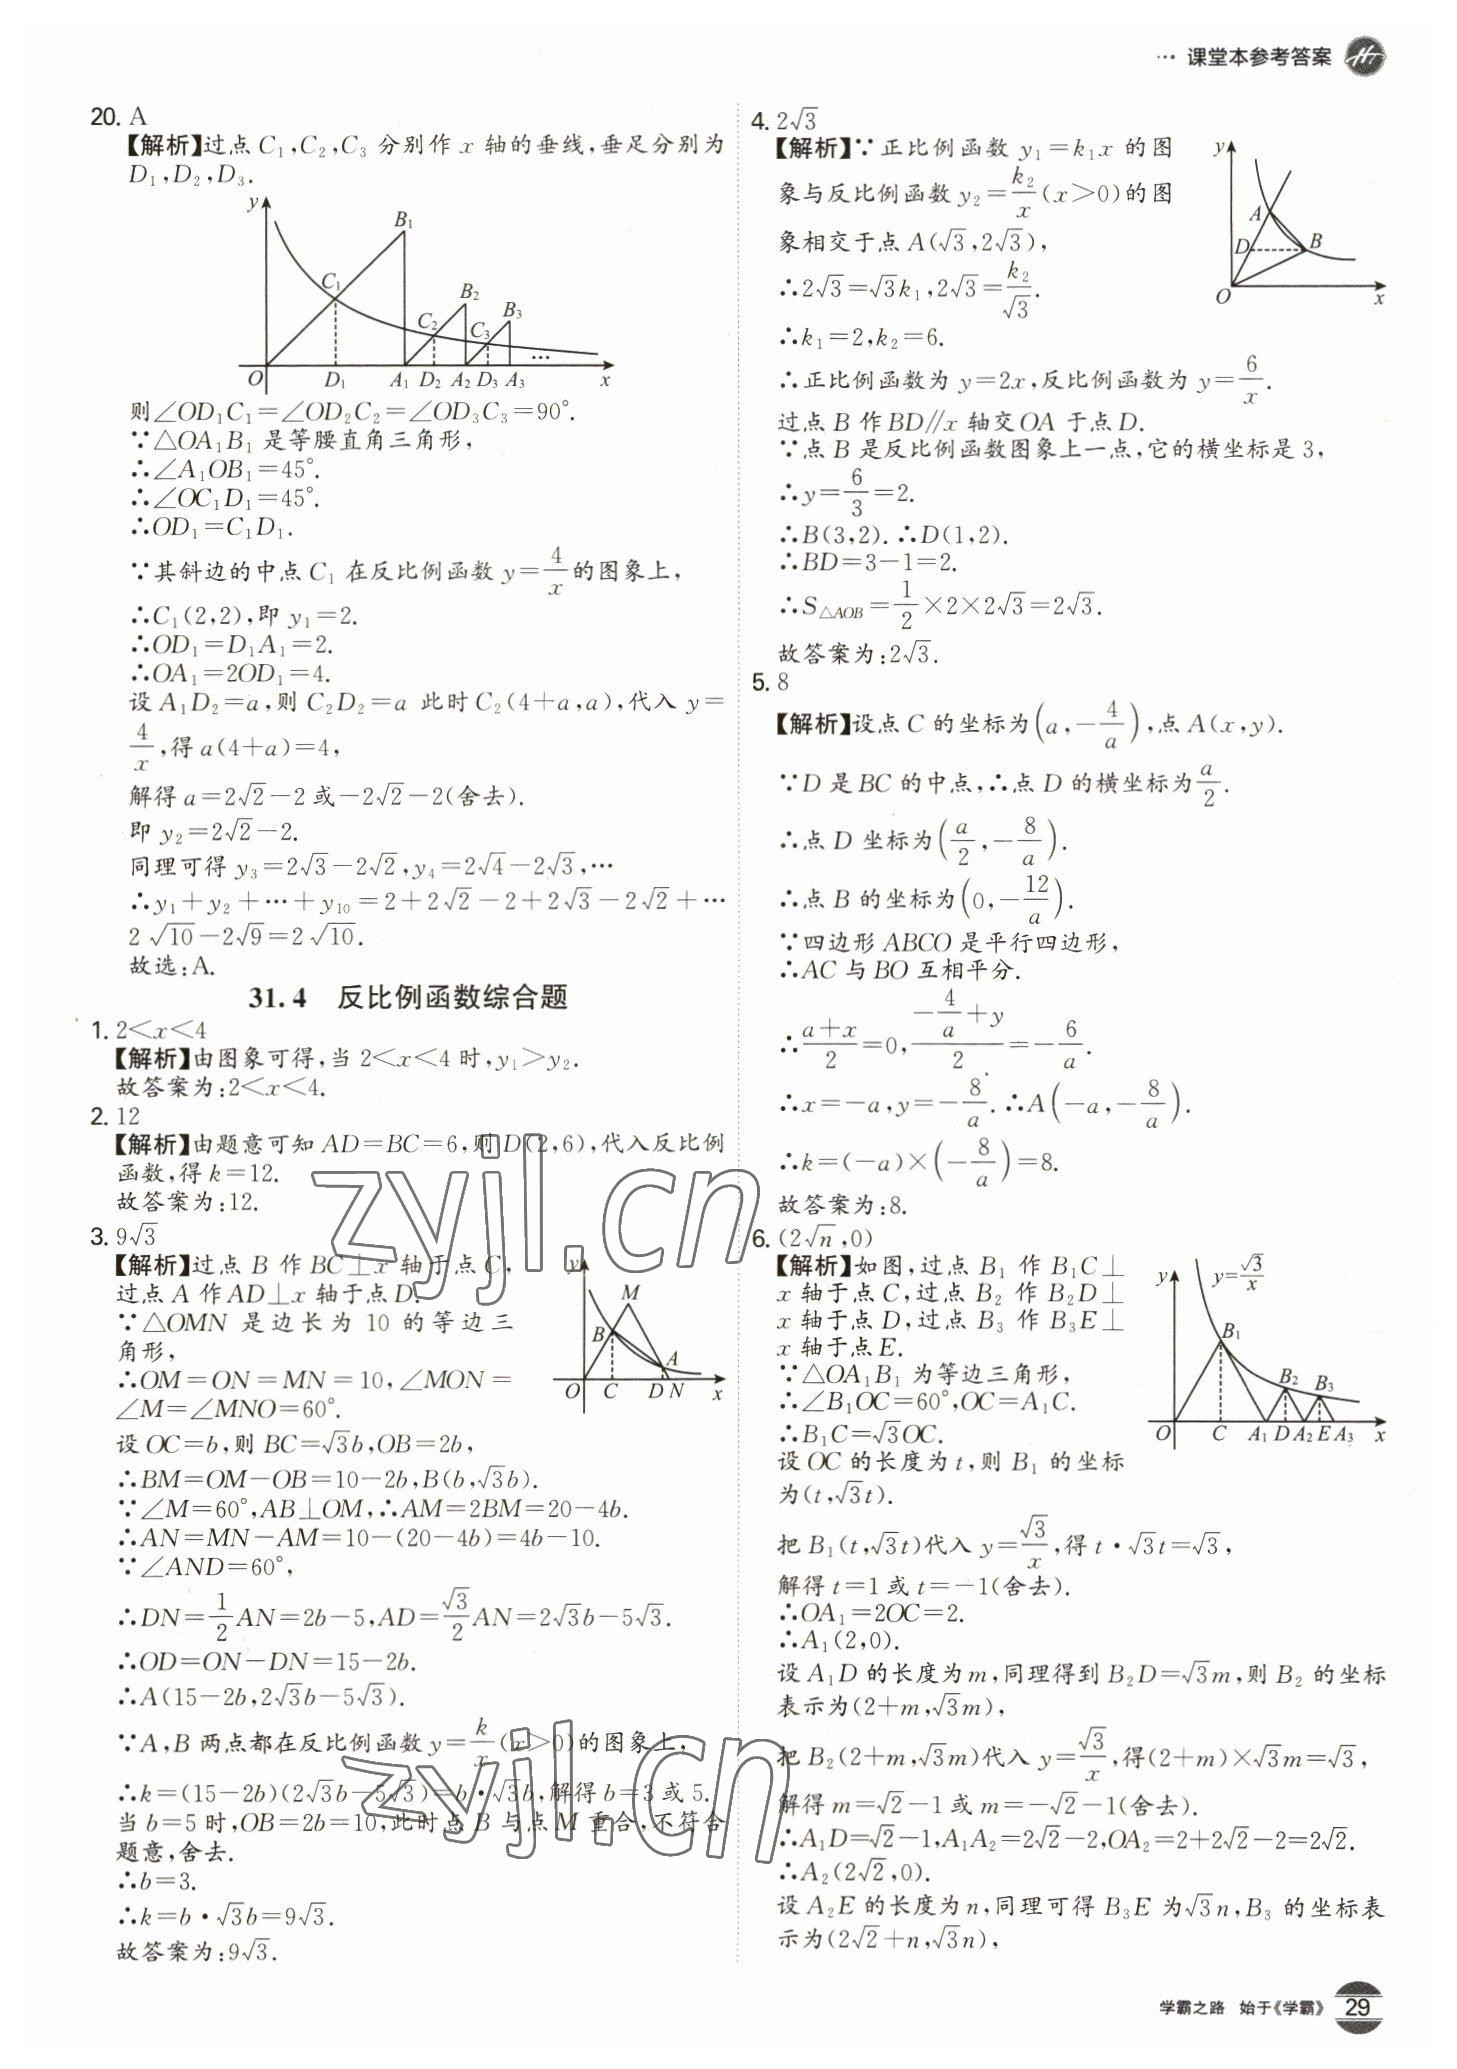 ··· 课堂本参考答案
20. A
【解析】过点 C₁,C₂,C₃ 分别作 x 轴的垂线,垂足分别为
D₁,D₂,D₃.
y
B₁
C₁
B₂
B₃
C₂
C₃
…
O D₁ A₁ D₂ A₂ D₃ A₃ x
则∠OD₁C₁=∠OD₂C₂=∠OD₃C₃=90°.
∵△OA₁B₁ 是等腰直角三角形,
∴∠A₁OB₁=45°.
∴∠OC₁D₁=45°.
∴OD₁=C₁D₁.
∵其斜边的中点 C₁ 在反比例函数 y=4/x 的图象上,
∴C₁(2,2),即 y₁=2.
∴OD₁=D₁A₁=2.
∴OA₁=2OD₁=4.
设 A₁D₂=a,则 C₂D₂=a 此时 C₂(4+a,a),代入 y=
4/x,得 a(4+a)=4,
解得 a=2√2-2 或-2√2-2(舍去).
即 y₂=2√2-2.
同理可得 y₃=2√3-2√2,y₄=2√4-2√3,…
∴y₁+y₂+…+y₁₀=2+2√2-2+2√3-2√2+…
2√10-2√9=2√10.
故选:A.
31.4 反比例函数综合题
1. 2<x<4
【解析】由图象可得,当 2<x<4 时,y₁>y₂.
故答案为:2<x<4.
2. 12
【解析】由题意可知 AD=BC=6,则 D(2,6),代入反比例
函数,得 k=12.
故答案为:12.
3. 9√3
【解析】过点 B 作 BC⊥x 轴于点 C,
过点 A 作 AD⊥x 轴于点 D.
∵△OMN 是边长为 10 的等边三
角形,
∴OM=ON=MN=10,∠MON=
∠M=∠MNO=60°.
y
M
B
A
O C D N x
设 OC=b,则 BC=√3b,OB=2b,
∴BM=OM-OB=10-2b,B(b,√3b).
∵∠M=60°,AB⊥OM,∴AM=2BM=20-4b.
∴AN=MN-AM=10-(20-4b)=4b-10.
∵∠AND=60°,
∴DN=1/2AN=2b-5,AD=√3/2AN=2√3b-5√3.
∴OD=ON-DN=15-2b.
∴A(15-2b,2√3b-5√3).
∵A,B 两点都在反比例函数 y=k/x(x>0)的图象上,
∴k=(15-2b)(2√3b-5√3)=b·√3b,解得 b=3 或 5.
当 b=5 时,OB=2b=10,此时点 B 与点 M 重合,不符合
题意,舍去.
∴b=3.
∴k=b·√3b=9√3.
故答案为:9√3.
4. 2√3
【解析】∵正比例函数 y₁=k₁x 的图
象与反比例函数 y₂=k₂/x(x>0)的图
象相交于点 A(√3,2√3),
∴2√3=√3k₁,2√3=k₂/√3.
∴k₁=2,k₂=6.
y
A
D
B
O
x
∴正比例函数为 y=2x,反比例函数为 y=6/x.
过点 B 作 BD∥x 轴交 OA 于点 D.
∵点 B 是反比例函数图象上一点,它的横坐标是 3,
∴y=6/3=2.
∴B(3,2). ∴D(1,2).
∴BD=3-1=2.
∴S△AOB=1/2×2×2√3=2√3.
故答案为:2√3.
5. 8
【解析】设点 C 的坐标为(a,-4/a),点 A(x,y).
∵D 是 BC 的中点,∴点 D 的横坐标为a/2.
∴点 D 坐标为(a/2,-8/a).
∴点 B 的坐标为(0,-12/a).
∵四边形 ABCO 是平行四边形,
∴AC 与 BO 互相平分.
∴(a+x)/2=0,(-4/a+y)/2=-6/a.
∴x=-a,y=-8/a. ∴A(-a,-8/a).
∴k=(-a)×(-8/a)=8.
故答案为:8.
6. (2√n,0)
【解析】如图,过点 B₁ 作 B₁C⊥
x 轴于点 C,过点 B₂ 作 B₂D⊥
x 轴于点 D,过点 B₃ 作 B₃E⊥
x 轴于点 E.
∵△OA₁B₁ 为等边三角形,
∴∠B₁OC=60°,OC=A₁C.
∴B₁C=√3OC.
设 OC 的长度为 t,则 B₁ 的坐标
为(t,√3t).
y
y=√3/x
B₁
B₂ B₃
O C A₁ D A₂ E A₃ x
把 B₁(t,√3t)代入 y=√3/x,得 t·√3t=√3,
解得 t=1 或 t=-1(舍去).
∴OA₁=2OC=2.
∴A₁(2,0).
设 A₁D 的长度为 m,同理得到 B₂D=√3m,则 B₂ 的坐标
表示为(2+m,√3m),
把 B₂(2+m,√3m)代入 y=√3/x,得(2+m)×√3m=√3,
解得 m=√2-1 或 m=-√2-1(舍去).
∴A₁D=√2-1,A₁A₂=2√2-2,OA₂=2+2√2-2=2√2.
∴A₂(2√2,0).
设 A₂E 的长度为 n,同理可得 B₃E 为√3n,B₃ 的坐标表
示为(2√2+n,√3n),
zyjl.cn
zyjl.cn
学霸之路 始于《学霸》 29